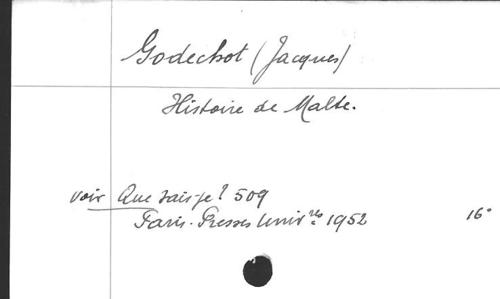 Godechot (Jacques)
Histoire de Malte.
voir Que sais-je? 509
Paris. Presses Univ.res 1952 16°